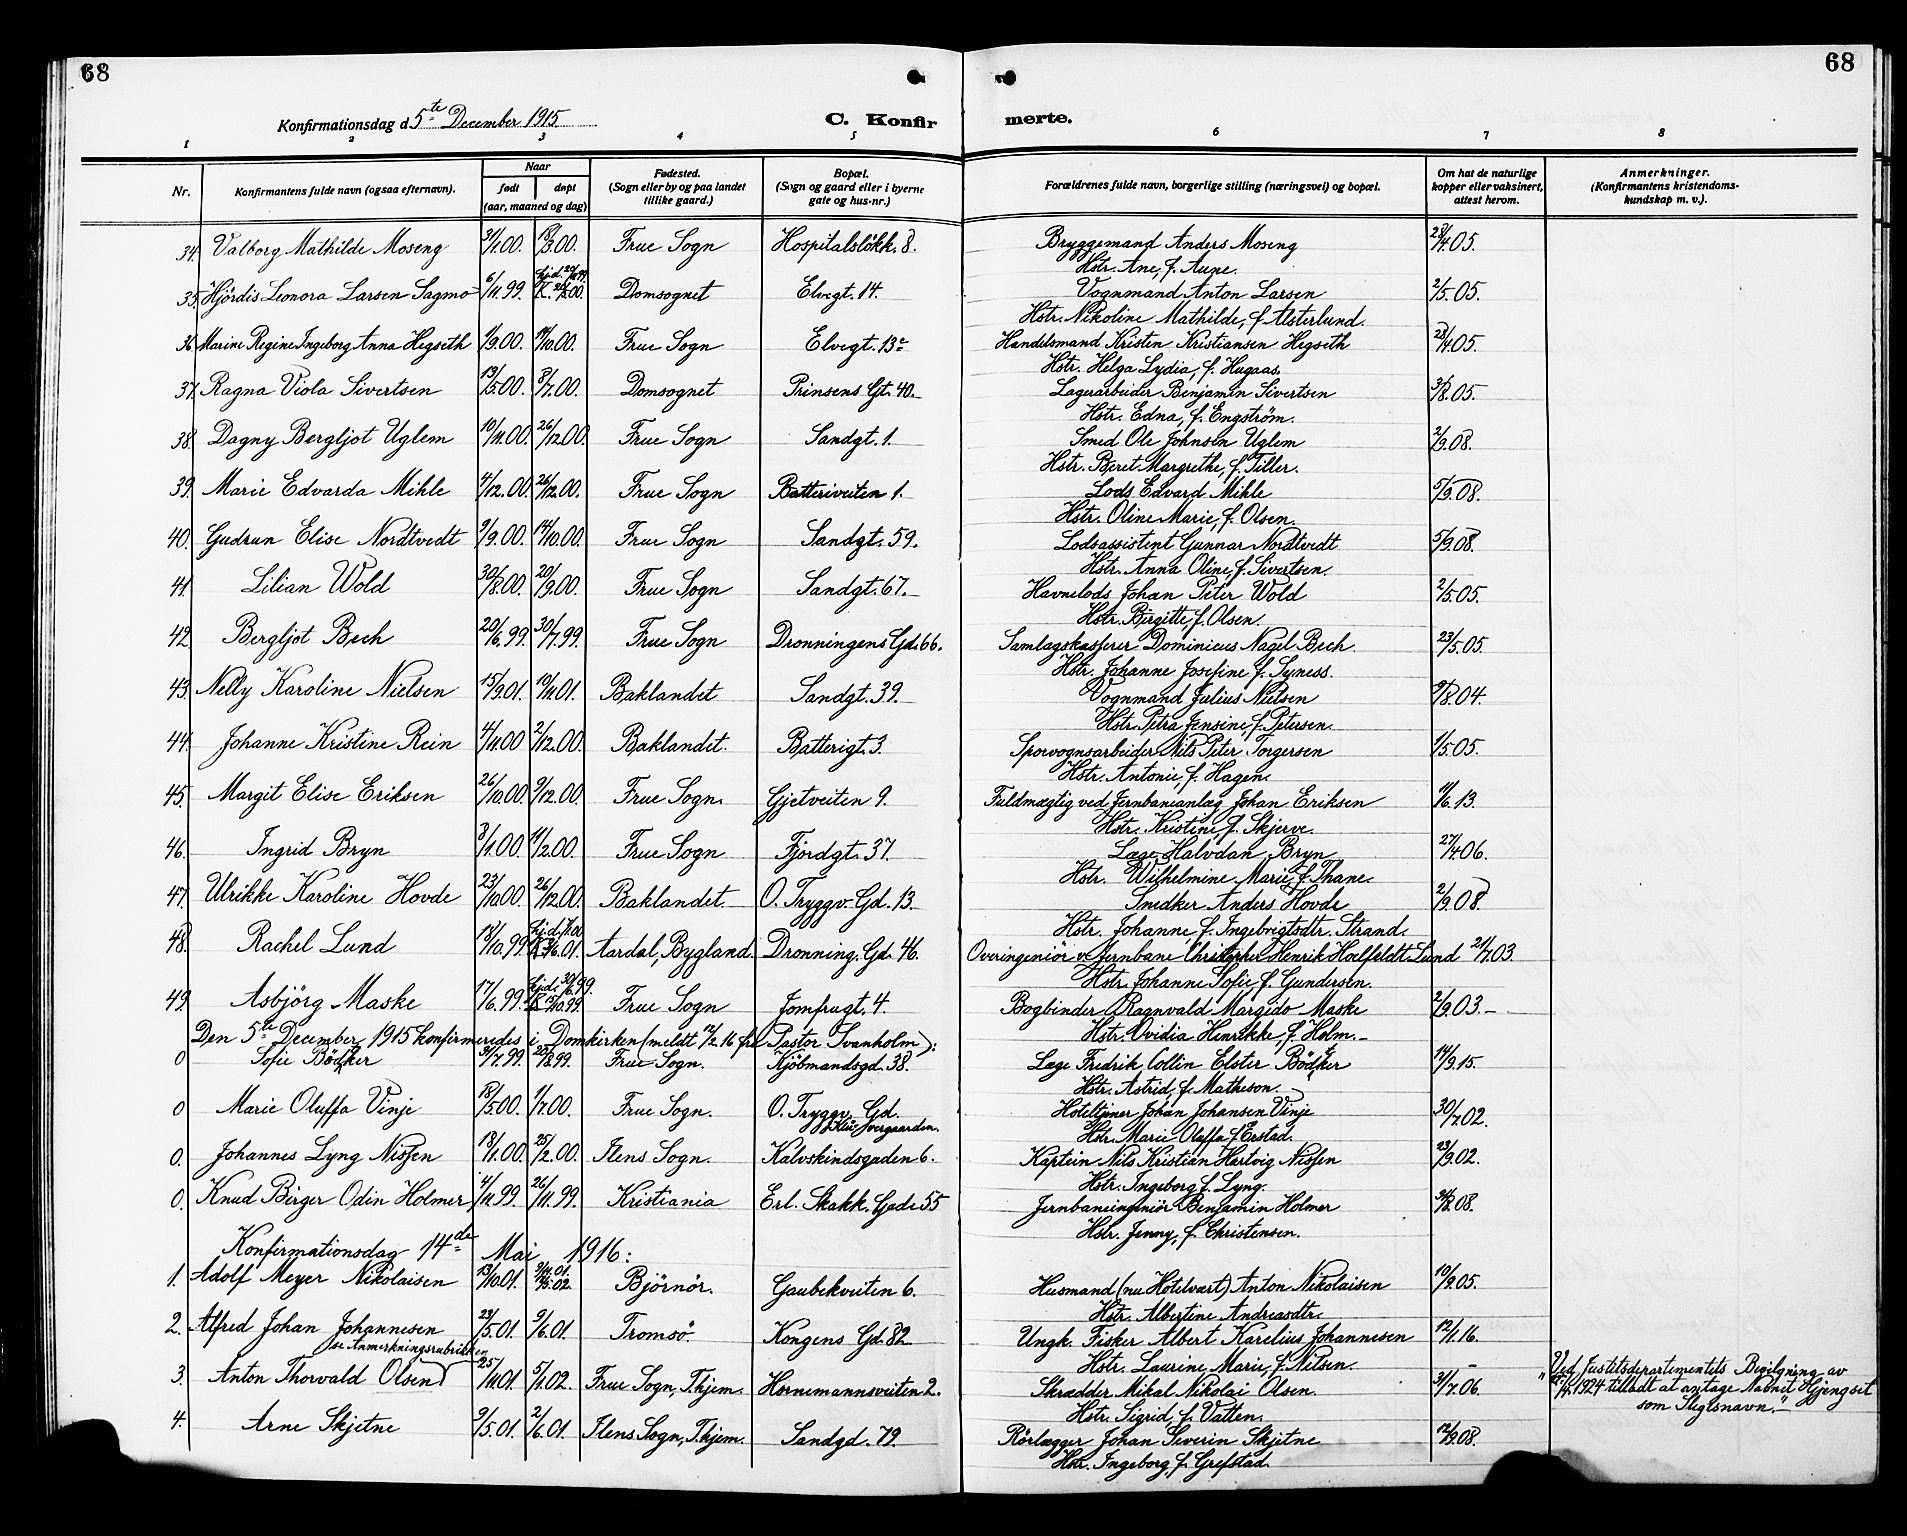 68
68
Konfirmationsdag d. 5te December 1915
C. Konfirmerte.
1 2 3 4 5 6 7 8
Nr. Konfirmantens fulde navn (ogsaa efternavn). Naar født døpt (aar, maaned og dag) Fødested. (Sogn eller by og paa landet tillike gaard.) Bopæl. (Sogn og gaard eller i byerne gate og hus-nr.) Forældrenes fulde navn, borgerlige stilling (næringsvei) og bopæl. Om hat de naturlige kopper eller vaksinert, attest herom. Anmerkninger. (Konfirmantens kristendoms-kundskap m. v.).
34. Valborg Mathilde Moseng 3/1.00. 18/3.00. Frue Sogn Hospitalsløkk. 8. Bryggemand Anders Moseng 28/4.05.
Hstr. Ane, f. Aune.
35. Hjördis Leonora Larsen Sagmo 6/11.99. Domsognet Elvegt. 14. Vognmand Anton Larsen 2/5.05.
Hstr. Nikoline Mathilde, f. Alsterlund.
36. Marine Regine Ingeborg Anna Hegseth 1/9.00. 14/10.00. Frue Sogn Elvegt. 13c Handelsmand Kristen Kristiansen Hegseth 28/4.05.
Hstr. Helga Lydia, f. Hugaas.
37. Ragna Viola Sivertsen 13/5.00. 8/7.00. Domsognet Prinsens Gt. 40. Lagerarbeider Benjamin Sivertsen 31/8.05.
Hstr. Edna, f. Engström.
38. Dagny Bergljot Uglem 10/11.00. 26/12.00. Frue Sogn Sandgt. 1. Smed Ole Johnsen Uglem 2/9.08.
Hstr. Beret Margrethe, f. Tiller.
39. Marie Edvarda Mihle 4/12.00. 26/12.00. Frue Sogn Batteriveiten 1. Lods Edvard Mihle 5/9.08.
Hstr. Oline Marie, f. Olsen.
40. Gudrun Elise Nordtvedt 9/9.00. 14/10.00. Frue Sogn Sandgt. 59. Lodsassistent Gunnar Nordtvedt 5/9.08.
Hstr. Anna Oline, f. Sivertsen.
41. Lilian Wold 30/8.00. 20/9.00. Frue Sogn Sandgt. 67. Havnelods Johan Peter Wold 2/5.05.
Hstr. Birgitte, f. Olsen.
42. Bergljot Bech 20/6.99. 30/7.99. Frue Sogn Dronningens Gd. 66. Samlagskasserer Dominicus Nagel Bech 23/5.05.
Hstr. Johanne Josefine f. Syness.
43. Nelly Karoline Nielsen 15/9.01. 10/11.01. Baklandet Sandgt. 39. Vognmand Julius Nielsen 9/8.04.
Hstr. Petra Jensine, f. Petersen.
44. Johanne Kristine Rein 4/11.00 2/12.00. Baklandet. Batterigt. 3. Sporvognsarbeider Nils Peter Torgersen 1/5.05.
Hstr. Antonie, f. Hagen.
45. Margit Elise Eriksen 26/10.00. 9/12.00. Frue Sogn. Gjetveiten 9. Fuldmægtig ved Jernbaneanlæg Johan Eriksen
Hstr. Kristine, f. Skjerve.
46. Ingrid Bryn 8/1.00. 11/2.00. Frue Sogn Fjordgt. 37. Læge Halvdan Bryn 27/4.06.
Hstr. Wilhelmine Marie, f. Thane.
47. Ulrikke Karoline Hovde 23/10.00. 26/12.00. Baklandet O. Tryggv. Gd. 13. Snedker Anders Hovde 2/9.08.
Hstr. Johanne, f. Ingebrigtsdtr. Strand.
48. Rachel Lund 18/10.99. Aardal, Bygland. Dronning. Gd. 46. Overingeniör v. Jernbane Christopher Henrik Holfeldt-Lund 21/7.03.
Hstr. Johanne Sofie f. Gundersen.
49. Asbjörg Maske 17/6.99. Frue Sogn Jomfrugt. 4. Bogbinder Ragnvald Margido Maske 2/9.03.
Hstr. Ovidia Henrikke, f. Holm.
Den 5te December 1915 konfirmeredes i Domkirken (meldt 12/2.16 fra Pastor Svanholm):
0 Sofie Bödtker 31/7.99. 20/8.99. Frue Sogn. Kjöbmandsgd. 38. Læge Fredrik Collin Elster Bödtker 14/9.15.
Hstr. Astrid, f. Matheson.
0 Marie Oluffa Vinje 18/5.00. 1/7.00. Frue Sogn. O. Tryggv. Gd. Hoteltjener Johan Johansen Vinje 30/7.02.
Hstr. Marie Oluffa f. Erstad.
0. Johannes Lyng Nissen 18/1.00. 25/2.00. Ilens Sogn. Kalvskindsgaden 6. Kaptein Nils Kristian Hartvig Nissen 23/9.02.
Hstr. Ingeborg f. Lyng.
0. Knud Birger Odin Holmer 4/11.99. 26/11.99. Kristiania Erl. Skakk. Gade 55 Jernbaneingeniör Benjamin Holmer
Hstr. Jenny, f. Christensen.
Konfirmationsdag 14de Mai 1916:
1. Adolf Meyer Nikolaisen 13/10.01. Björnör. Gaubekveiten 6. Husmand (nu Hotelvært) Anton Nikolaisen 10/9.05.
Hstr. Albertine Andreasdtr.
2. Alfred Johan Johannesen 23/5.01. 9/6.01. Tromsö. Kongens Gd. 82. Ungk. Fisker Albert Karelius Johannesen 12/1.16.
se Anmerkningsrubrikken
Hstr. Laurine Marie, f. Nilsen.
3. Anton Thorvald Olsen 25/11.01. 5/1.02. Frue Sogn, T.hjem. Hornemannsveiten 2. Skrædder Mikal Nikolai Olsen. 31/7.06. Ved Justitsdepartementets Bevilgning av 1924 tilladt at antage Navnet Hjengset som Slegtsnavn.
Hstr. Sigrid, f. Vatten.
4. Arne Skjetne 9/5.01. 2/6.01. Ilens Sogn, T.hjem. Sandgd. 79. Rörlægger Johan Severin Skjetne 12/9.08.
Hstr. Ingeborg, f. Grefstad.